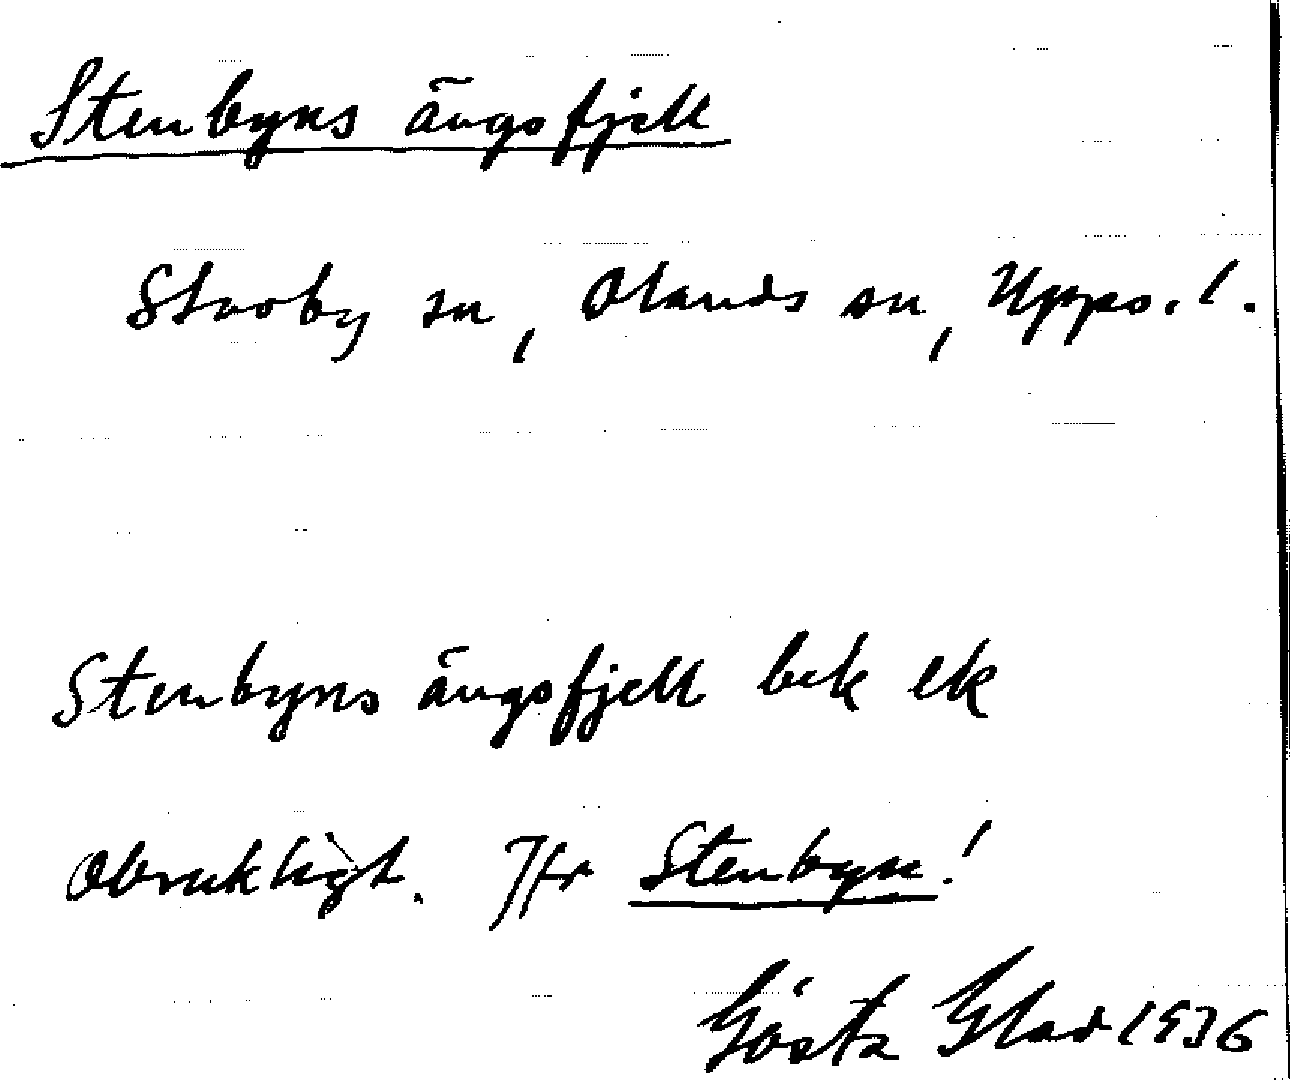 Stenbyns ängsfjell
Stavby sn, Olands sn, Upps. l.
Stenbyns ängsfjell bek ek
Obrukligt. Jfr Stenbyn!
Gösta Glad 1936